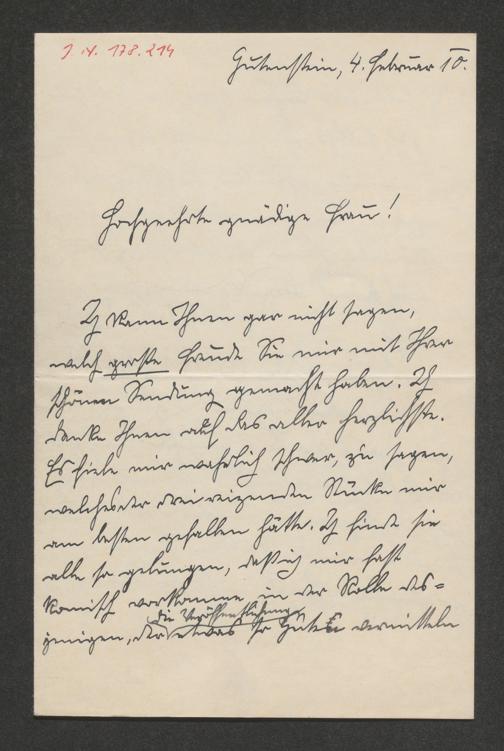 J. N. 178.214
Gutenstein, 4. Februar 10.
Hochgeehrte gnädige Frau!
Ich kann Ihnen gar nicht sagen,
welch große Freude Sie mir mit Ihrer
schönen Sendung gemacht haben. Ich
danke Ihnen auf das aller herzlichste.
Es fiele mir wahrlich schwer, zu sagen,
welches der drei reizenden Stücke mir
am besten gefallen hätte. Ich finde sie
alle so gelungen, daß ich mir fast
komisch vorkomme in der Rolle des-
die Veröffentlichung
jenigen, der etwas so Gutes vermitteln